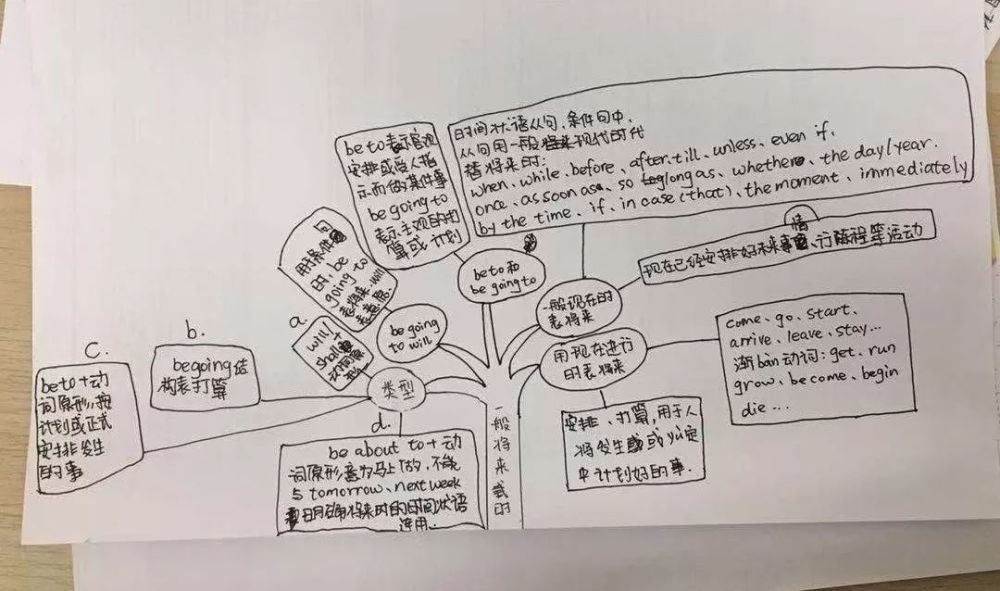 be to表示客观
安排或受人指
示而做某件事
be going to
表示主观的打
算或计划
时间状语从句,条件句中,
从句用一般现代时代
替将来时:
when、while、before、after、till、unless、even if、
once、as soon as、so long as、whether、the day/year、
by the time、if、in case (that)、the moment、immediately
用于条件句
时,be
going to
表将来,will
表意愿
be to 和
be going to
现在已经安排好未来事情、行程等活动
a.
will/
shall+
动词原
形
be going
to will
一般现在时
表将来
用现在进行
时表将来
come、go、start、
arrive、leave、stay...
渐bàn动词:get、run
grow、become、begin
die...
b.
be going结
构表打算
C.
be to+动
词原形,按
计划或正式
安排发生
的事
类型
d.
be about to+动
词原形,意为马上做,不能
与tomorrow、next week
等明确将来时的时间状语
连用.
一般将来时
安排、打算,用于人
将发生或yù定
中计划好的事.